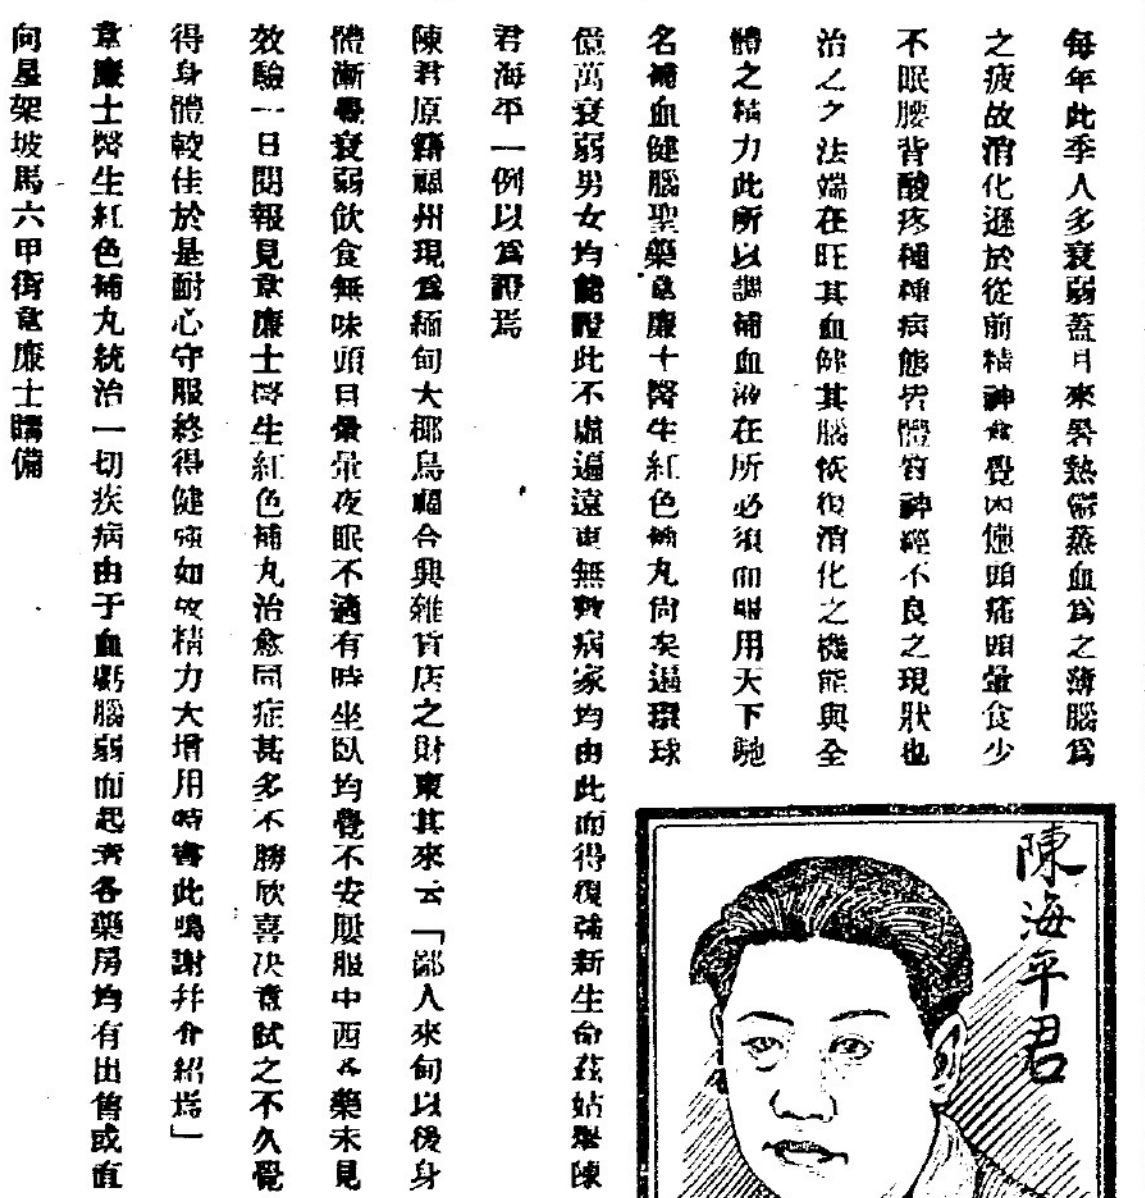 每年此季人多衰弱蓋日來暑熱鬱蒸血爲之薄腦爲
之疲故消化遜於從前精神食覺困憊頭痛頭暈食少
不眠腰背酸疼種種病態皆體質神經不良之現狀也
治之之法端在旺其血健其腦恢復消化之機能與全
體之精力此所以調補血液在所必須而服用天下馳
名補血健腦聖藥韋廉士醫生紅色補丸尚矣遍環球
億萬衰弱男女均能證此不虛遍遠東無數病家均由此而得復強新生命茲姑舉陳
君海平一例以爲證焉
陳君原籍福州現爲緬甸大挪烏福合興雜貨店之財東其來云「鄙人來甸以後身
體漸覺衰弱飲食無味頭目暈暈夜眠不適有時坐臥均覺不安屢服中西各藥未見
效驗一日閱報見韋廉士醫生紅色補丸治愈同症甚多不勝欣喜决意試之不久覺
得身體較佳於是耐心守服終得健強如故精力大增用特書此鳴謝并介紹焉」
韋廉士醫生紅色補丸統治一切疾病由于血虧腦弱而起者各藥房均有出售或直
向星架坡馬六甲街韋廉士購備
陳海平君